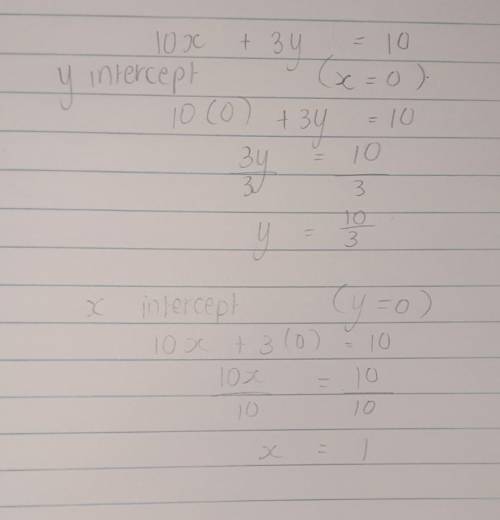 10x + 3y = 10
y intercept (x = 0).
10(0) + 3y = 10
3y/3 = 10/3
y = 10/3
x intercept (y=0)
10x + 3(0) = 10
10x/10 = 10/10
x = 1